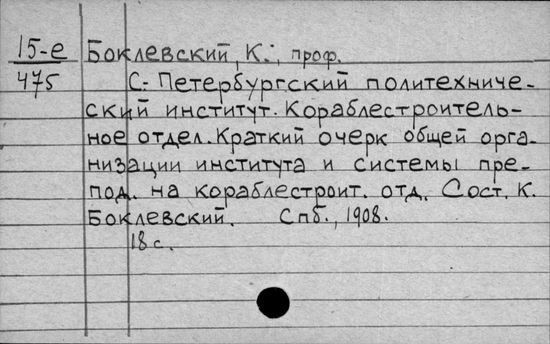 15-е Боклевский, К., проф.
475 С.-Петербургский политехниче-
ский институт. Кораблестроитель-
ное отдел. Краткий очерк общей орга-
низации института и системы пре-
под. на кораблестроит. отд. Сост. К.
Боклевский. Спб., 1908.
18 с.